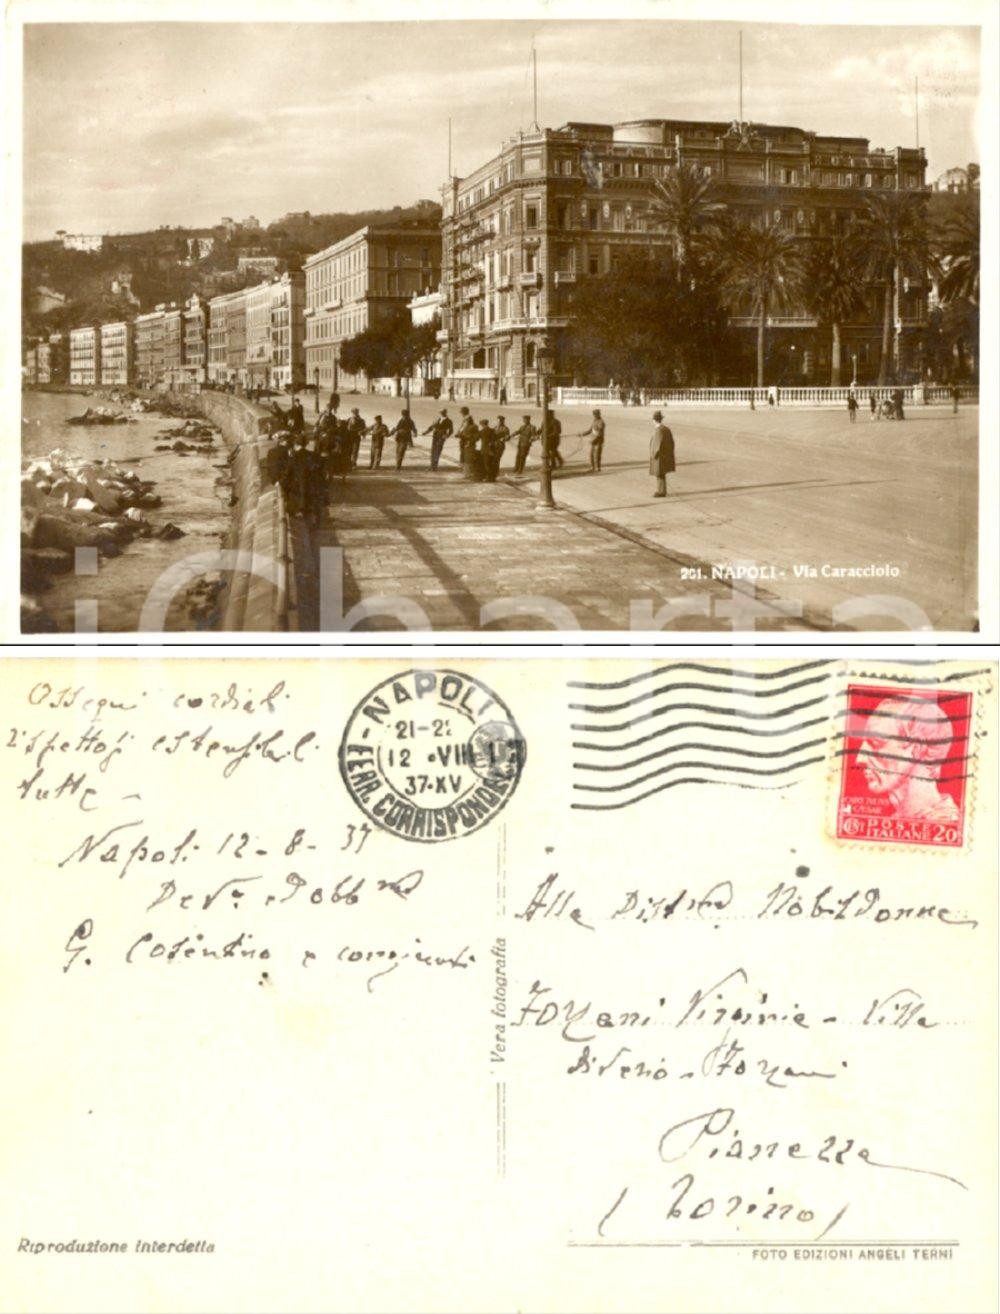 201. NAPOLI - Via Caracciolo
Ossequi cordiali
rispettosi estensibili
tutte -
Napoli 12-8-37
Dev. Obb.mo
G. Cosentino e congiunti
NAPOLI
21-22
12 VIII 1937
37-XV
FERR. CORRISPONDENZE
CAIUS IULIUS
CAESAR
CENT. POSTE ITALIANE 20
Alla Distma Nobildonna
Virginia - Villa
Pianezza
(Torino)
Vera fotografia
Riproduzione interdetta
FOTO EDIZIONI ANGELI TERNI